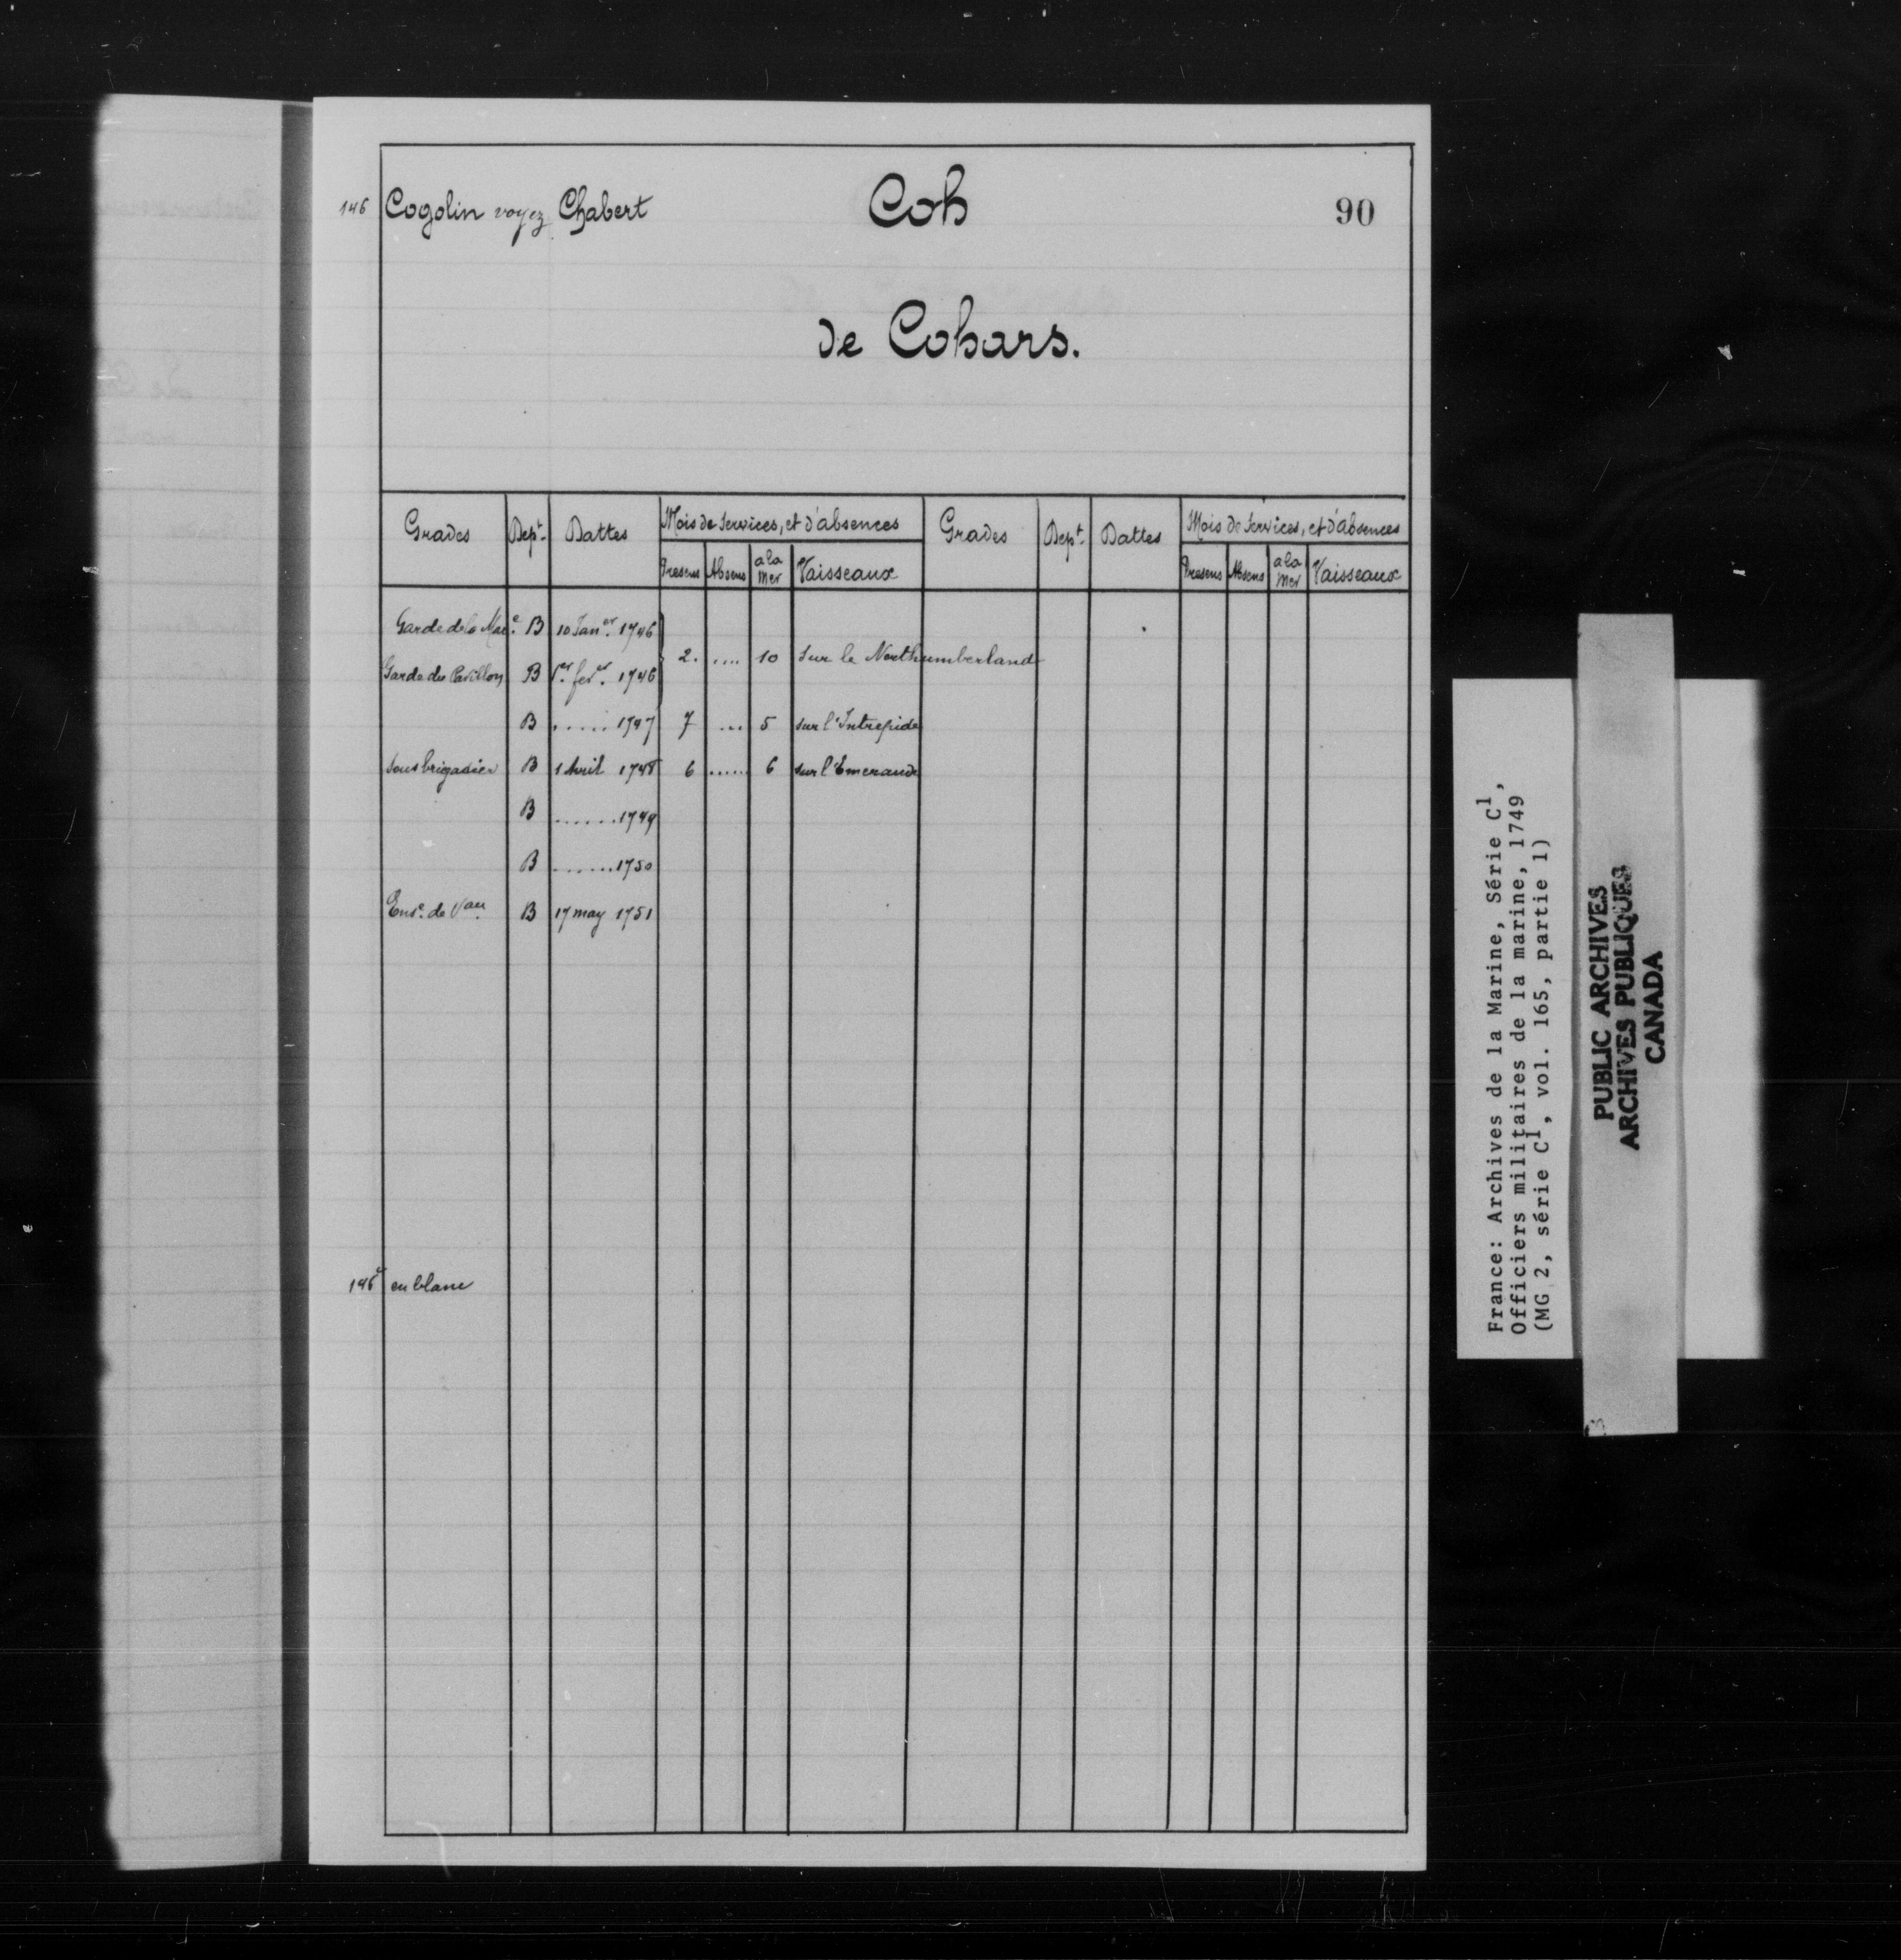 146 Cogolin voyez Chabert Coh 90
de Cohars.
Grades Dept. Dattes Mois de services, et d'absences Grades Dept. Dattes Mois de services, et d'absences
Presens Absens a la mer Vaisseaux Presens Absens a la mer Vaisseaux
Garde de la Mare. B 10 Janer. 1746
2. .... 10 sur le Northumberland
Garde du Pavillon B 1er. fever. 1746
B ...... 1747 7 ... 5 sur l'Intrepide
Sous brigadier B 1 Avril 1748 6 ...... 6 sur l'Emeraude
B ....... 1749
B ....... 1750
Ense. de Vau B 17 may 1751
146 en blanc
France: Archives de la Marine, Série C1,
Officiers militaires de la marine, 1749
(MG 2, série C1, vol. 165, partie 1)
PUBLIC ARCHIVES
ARCHIVES PUBLIQUES
CANADA